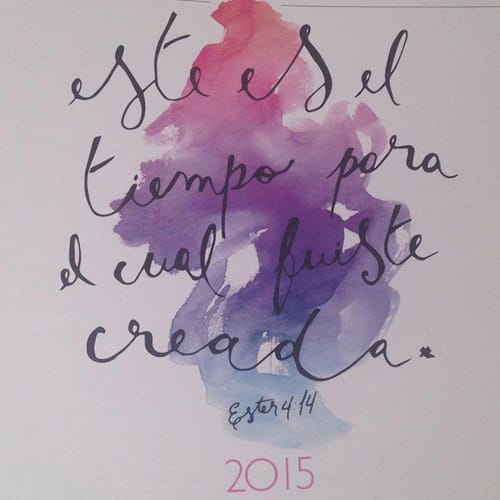 este es el
tiempo para
el cual fuiste
creada.
Ester 4:14
2015